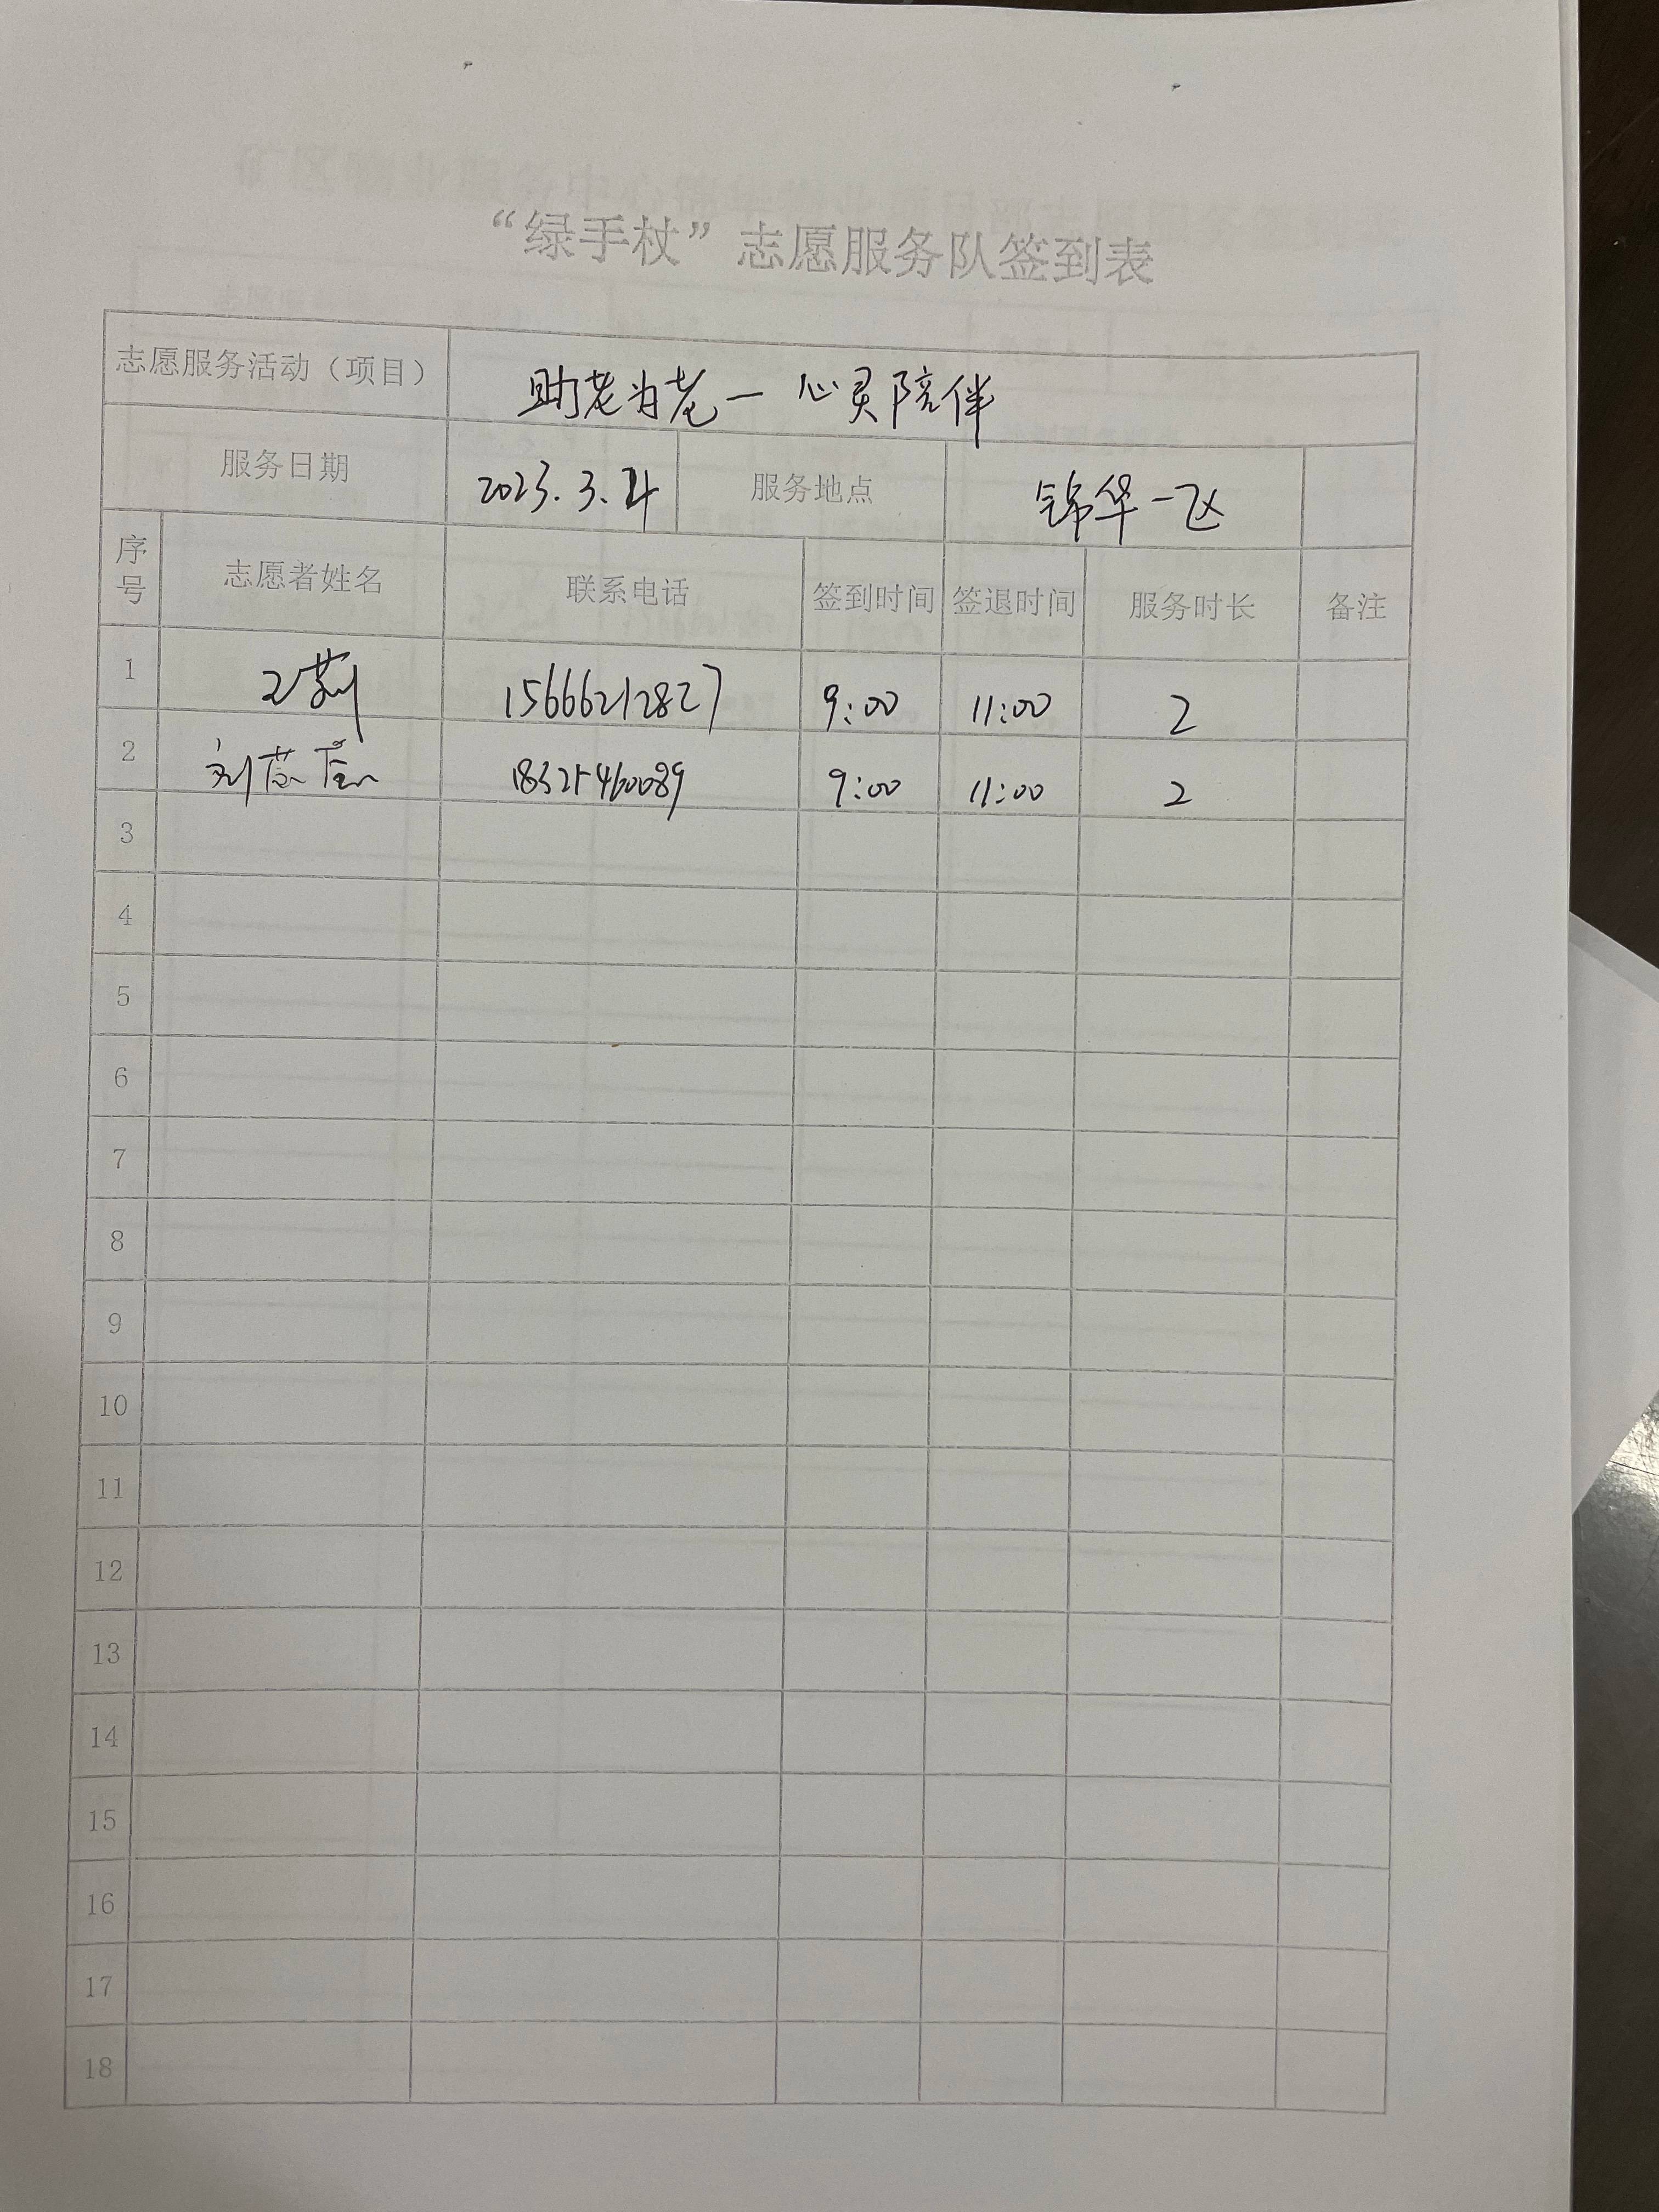 “绿手杖”志愿服务队签到表
志愿服务活动（项目） 助老为老一心灵陪伴
服务日期 2023.3.4 服务地点 锦华一区
序号 志愿者姓名 联系电话 签到时间 签退时间 服务时长 备注
1 王莉 15666212827 9:00 11:00 2
2 刘 18325460089 9:00 11:00 2
3
4
5
6
7
8
9
10
11
12
13
14
15
16
17
18